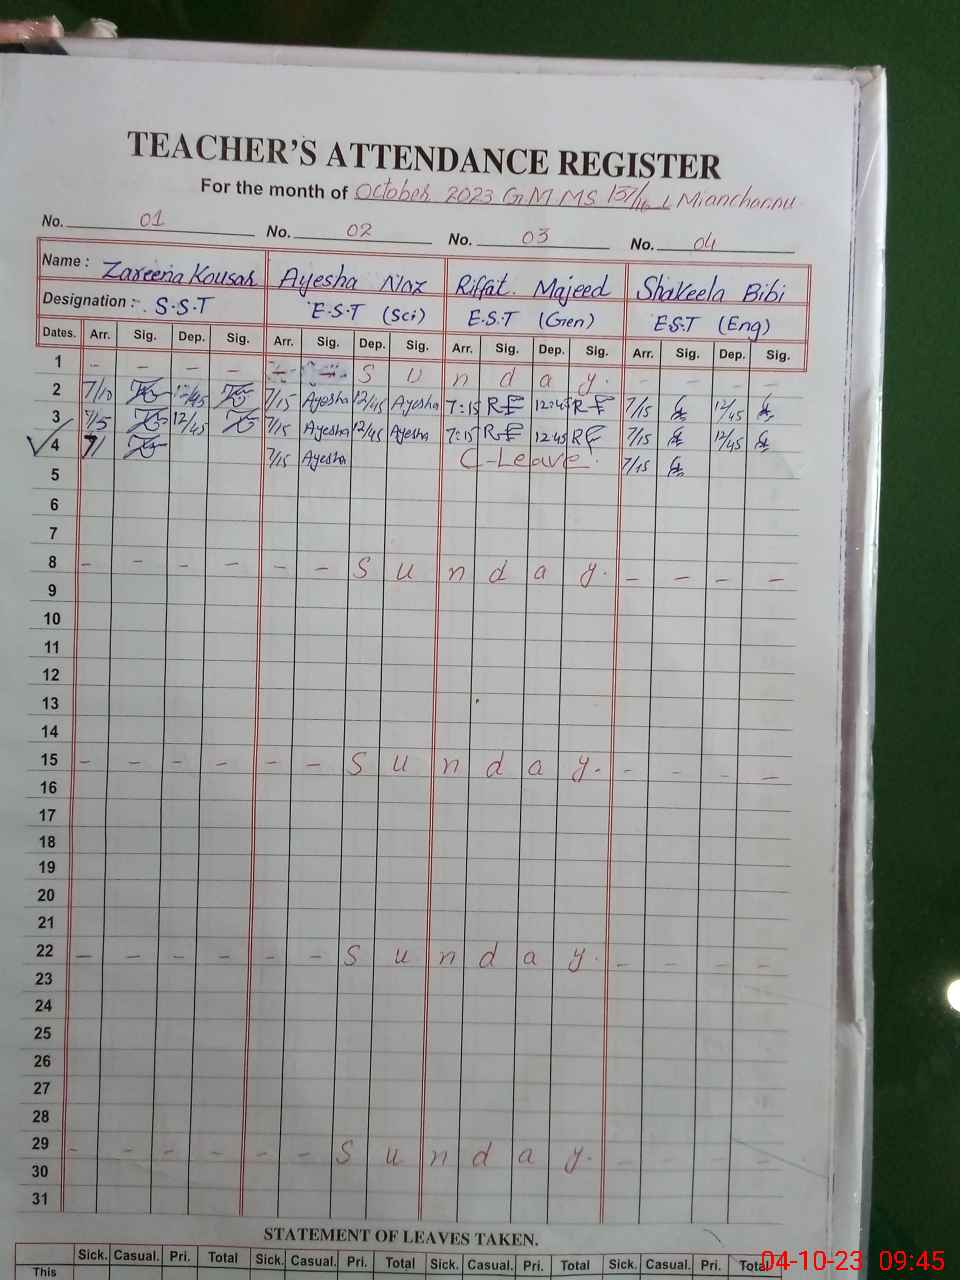 TEACHER'S ATTENDANCE REGISTER
For the month of October 2023 G.M.MS 137/16 L Mianchannu
No. 01 No. 02 No. 03 No. 04
Name : Zareena Kousar Ayesha Naz Riffat Majeed Shakeela Bibi
Designation : S.S.T E.S.T (Sci) E.S.T (Gen) E.S.T (Eng)
Dates. Arr. Sig. Dep. Sig. Arr. Sig. Dep. Sig. Arr. Sig. Dep. Sig. Arr. Sig. Dep. Sig.
1 - - - - S u n d a y. - - - -
2 7/10 12/45 7/15 Ayesha 12/45 Ayesha 7:15 RF 12:45 RF 7/15 12/45
3 7/5 12/45 7/15 Ayesha 12/45 Ayesha 7:15 RF 1245 RF 7/15 12/45
4 7/ 7/15 Ayesha C-Leave. 7/15
5
6
7
8 - - - - - - S u n d a y. - - - -
9
10
11
12
13
14
15 - - - - - - S u n d a y. - - - -
16
17
18
19
20
21
22 - - - - - - S u n d a y. - - - -
23
24
25
26
27
28
29 - - - - - - S u n d a y. - - - -
30
31
STATEMENT OF LEAVES TAKEN.
Sick. Casual. Pri. Total Sick. Casual. Pri. Total Sick. Casual. Pri. Total Sick. Casual. Pri. Total
This
04-10-23 09:45